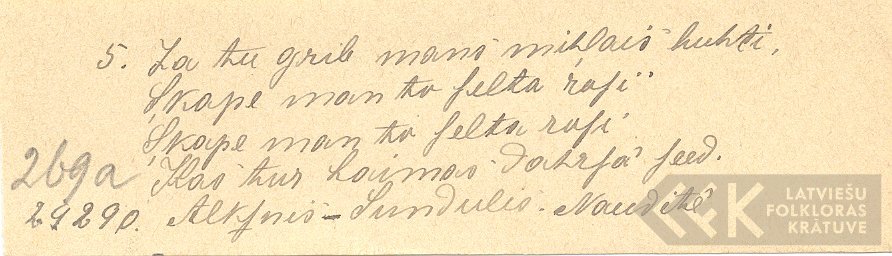 5. Ja tu grib mans mihlais buhti,
Skape man to selta rosi
Skape man to selta rosi
Kas tur Laimas dahrsâ seed.
269a
29290. Alksnis-Sundulis. Naudītē
LATVIEŠU
FOLKLORAS
KRĀTUVE
LFK